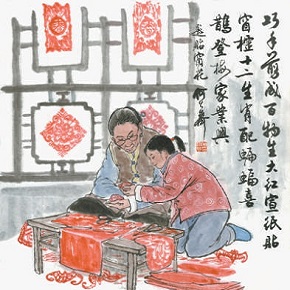 巧手剪成百物生大红宣纸贴
窗棂十二生肖配蝙蝠喜
鹊登梅家业兴
剪贴窗花